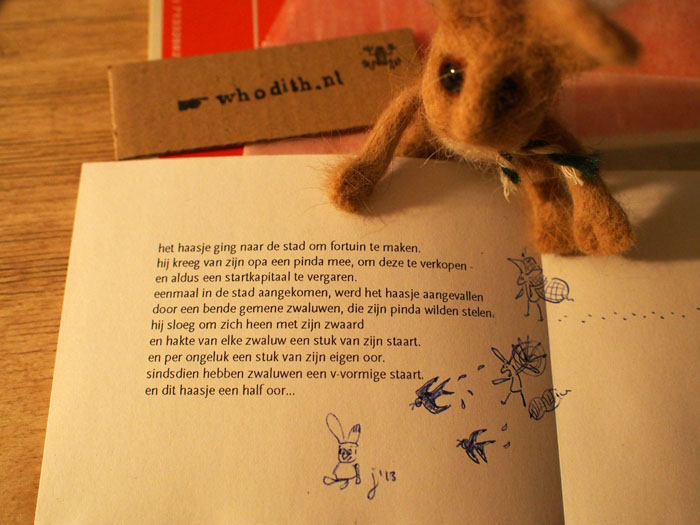 whodith.nl
het haasje ging naar de stad om fortuin te maken.
hij kreeg van zijn opa een pinda mee, om deze te verkopen -
en aldus een startkapitaal te vergaren.
eenmaal in de stad aangekomen, werd het haasje aangevallen
door een bende gemene zwaluwen, die zijn pinda wilden stelen.
hij sloeg om zich heen met zijn zwaard
en hakte van elke zwaluw een stuk van zijn staart.
en per ongeluk een stuk van zijn eigen oor.
sindsdien hebben zwaluwen een v-vormige staart.
en dit haasje een half oor...
j'13